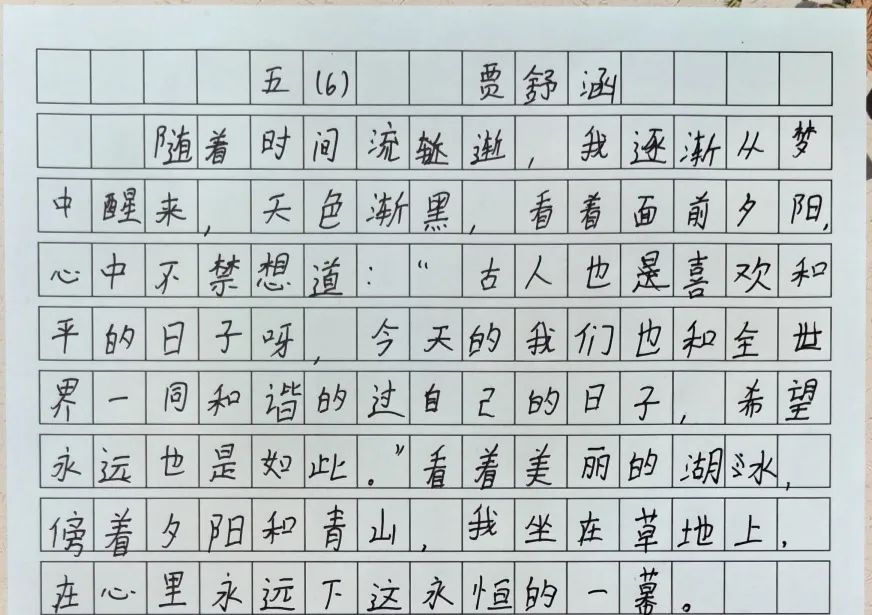 五(6) 贾舒涵
随着时间流逝渐渐，我逐渐从梦
中醒来，天色渐黑，看着面前夕阳，
心中不禁想道：“古人也是喜欢和
平的日子呀，今天的我们也和全世
界一同和谐的过自己的日子，希望
永远也是如此。”看着美丽的湖水，
傍着夕阳和青山，我坐在草地上，
在心里永远下这永恒的一幕。